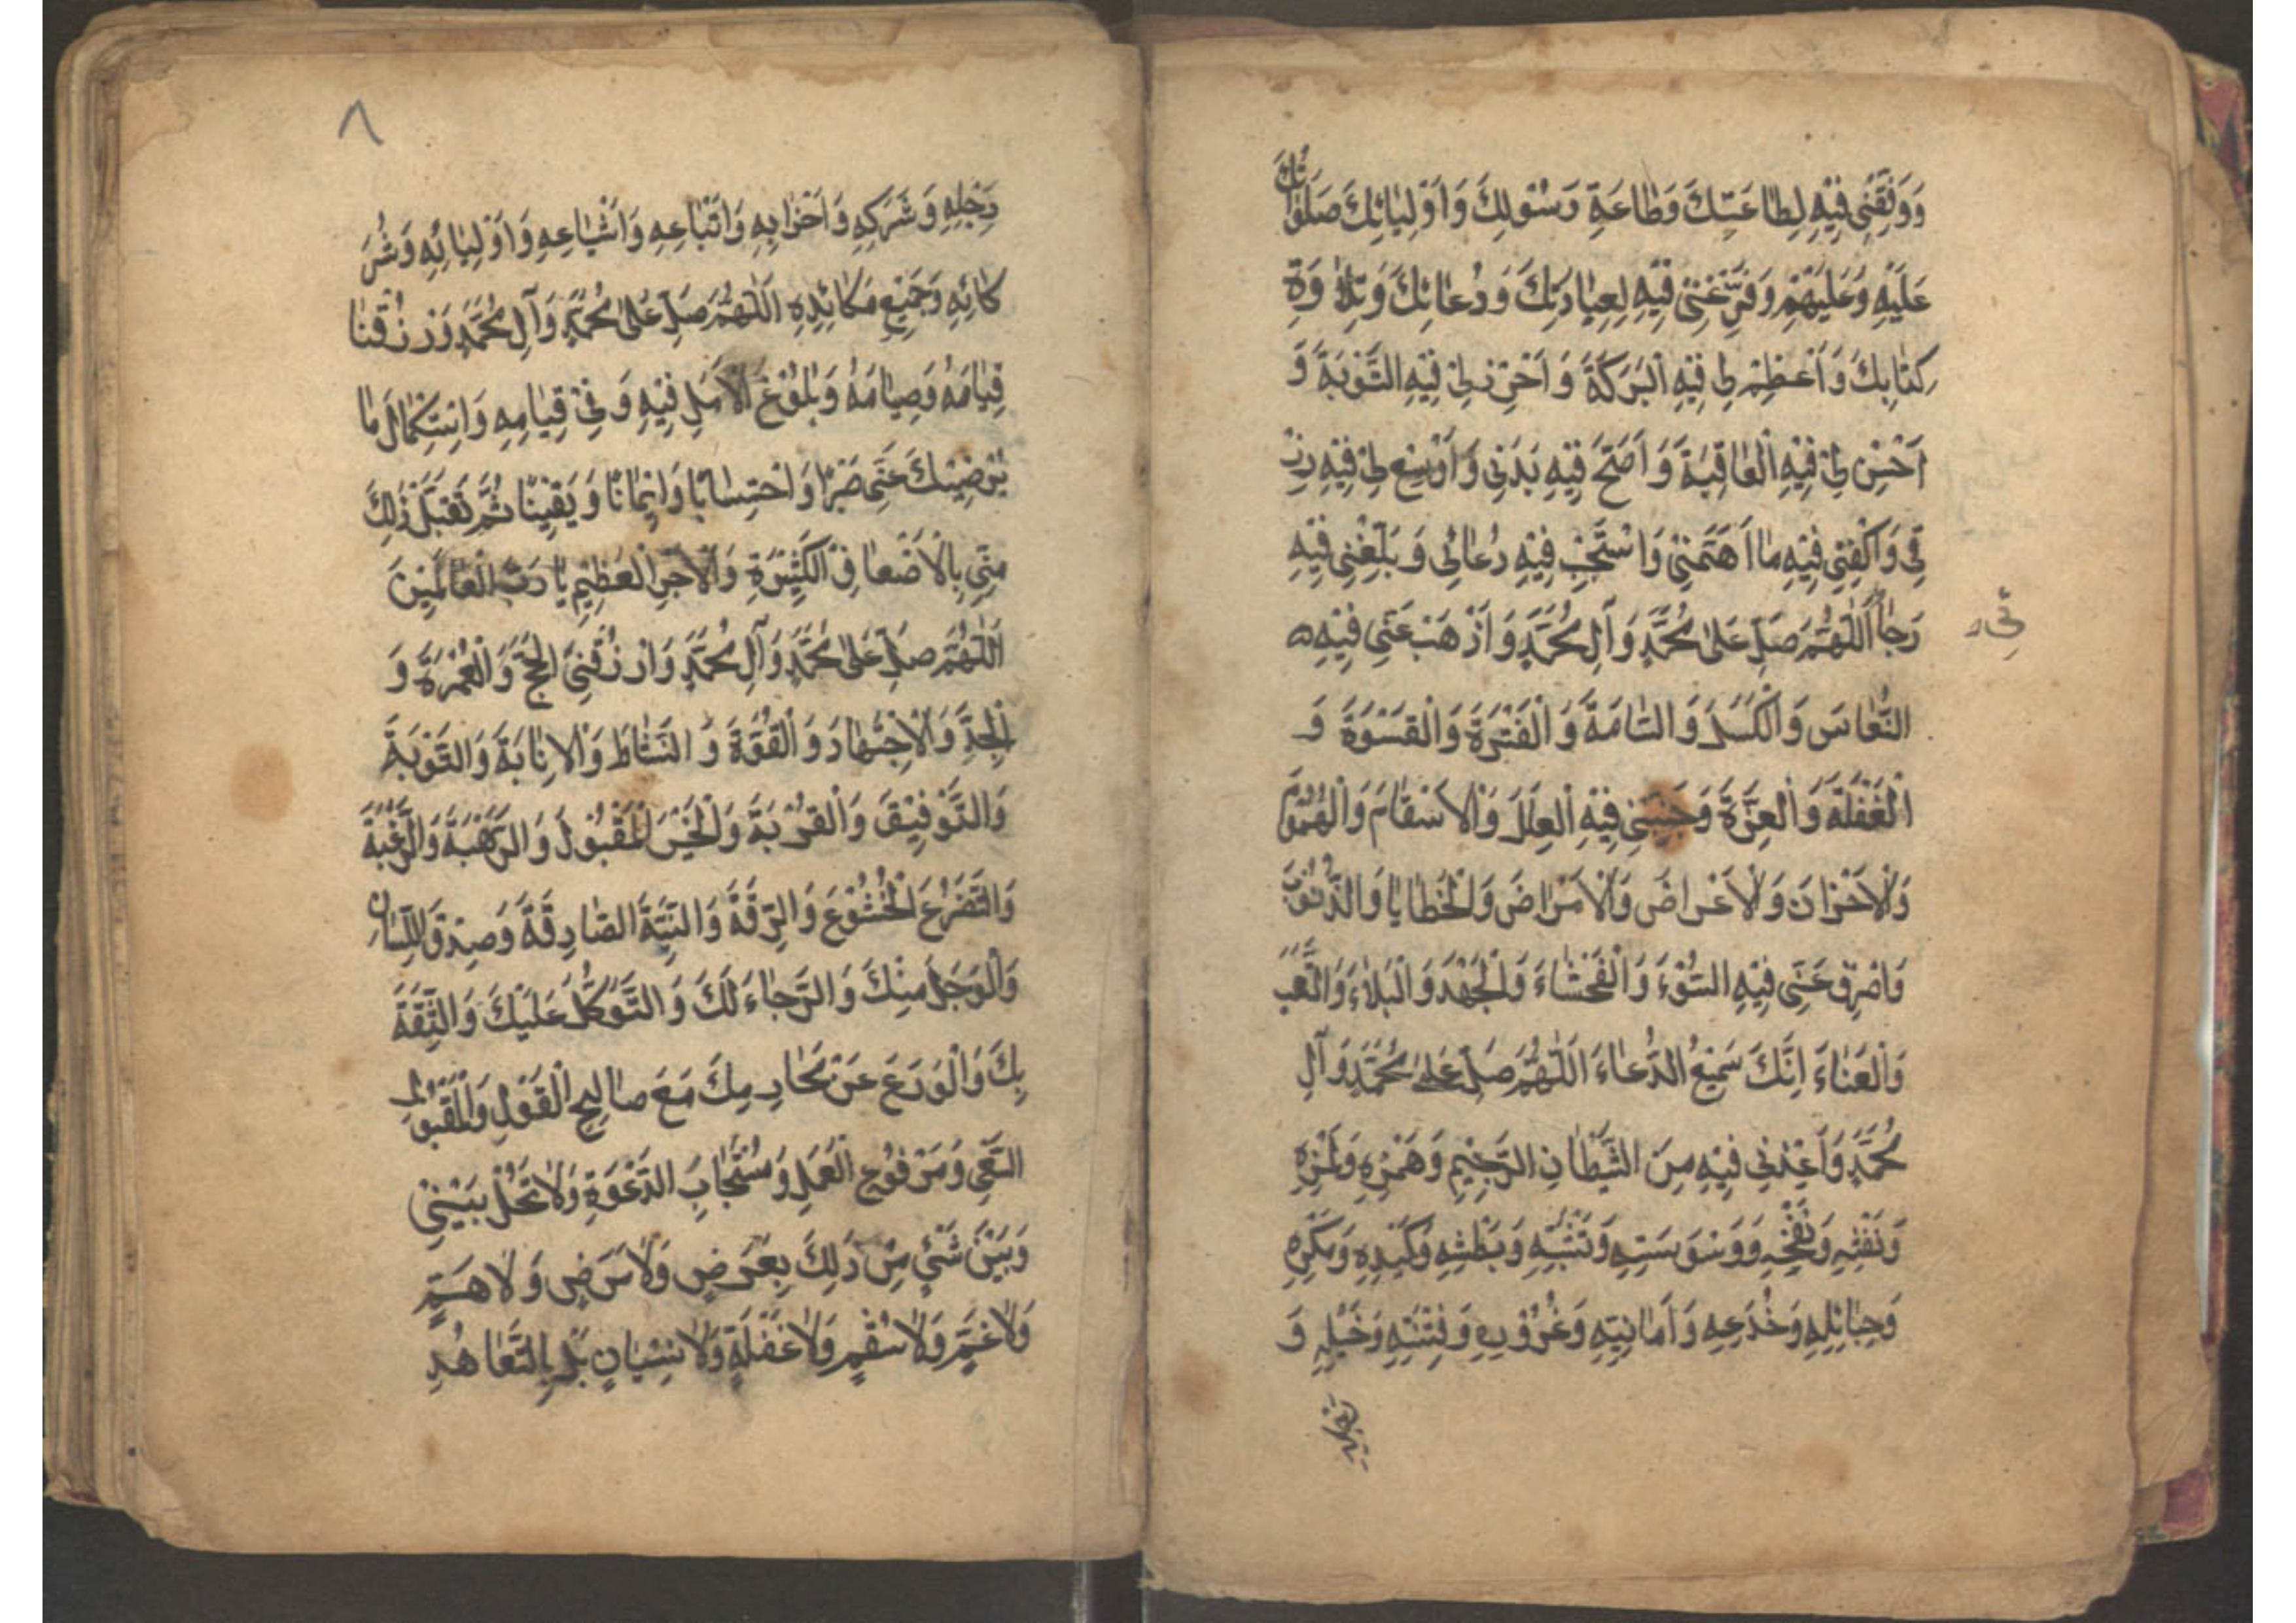 وَوَفِّقْنِي فِيْهِ لِطَاعَتِكَ وَطَاعَةِ رَسُوْلِكَ وَاَوْلِيَائِكَ صَلَوَاتُكَ
عَلَيْهِ وَعَلَيْهِمْ وَفَرِّغْنِيْ فِيْهِ لِعِبَادَتِكَ وَدُعَائِكَ وَتِلَاوَةِ
كِتَابِكَ وَاَعْظِمْ لِيْ فِيْهِ الْبَرَكَةَ وَاَحْرِزْ لِيْ فِيْهِ التَّوْبَةَ وَ
اَحْسِنْ لِيْ فِيْهِ الْعَاقِبَةَ وَاَصِحَّ فِيْهِ بَدَنِي وَاَوْسِعْ لِيْ فِيْهِ رِزْ
قِي وَاكْفِنِي فِيْهِ مَا اَهَمَّنِيْ وَاسْتَجِبْ فِيْهِ دُعَائِي وَبَلِّغْنِي فِيْهِ
رَجَا اَللّٰهُمَّ صَلِّ عَلَى مُحَمَّدٍ وَآلِ مُحَمَّدٍ وَاَذْهِبْ عَنِّي فِيْهِ
ئِي
النُّعَاسَ وَالْكَسَلَ وَالسَّامَةَ وَالْفَتْرَةَ وَالْقَسْوَةَ وَ
الْغَفْلَةَ وَالْغِرَّةَ وَجَنِّبْنِي فِيْهِ الْعِلَلَ وَالْاَسْقَامَ وَالْهُمُوْمَ
وَالْاَحْزَانَ وَالْاَعْرَاضَ وَالْاَمْرَاضَ وَالْخَطَايَا وَالذُّنُوْبَ
وَاصْرِفْ عَنِّي فِيْهِ السُّوْءَ وَالْفَحْشَاءَ وَالْجَهْدَ وَالْبَلَاءَ وَالتَّعَبَ
وَالْعَنَاءَ اِنَّكَ سَمِيْعُ الدُّعَاءَ اَللّٰهُمَّ صَلِّ عَلَى مُحَمَّدٍ وَآلِ
مُحَمَّدٍ وَاَعِذْنِي فِيْهِ مِنَ الشَّيْطَانِ الرَّجِيْمِ وَهَمْزِهِ وَلَمْزِهِ
وَنَفْثِهِ وَنَفْخِهِ وَوَسْوَسَتِهِ وَتَثْبِيْهِ وَبَطْشِهِ وَكَيْدِهِ وَمَكْرِهِ
وَحِبَائِلِهِ وَخُدَعِهِ وَاَمَانِيِّهِ وَغُرُوْرِهِ وَفِتْنَتِهِ وَخَيْلِهِ وَ
٨
رَجْلِهِ وَشَرَكِهِ وَاَحْزَابِهِ وَاَتْبَاعِهِ وَاَشْيَاعِهِ وَاَوْلِيَائِهِ وَشُرَ
كَائِهِ وَجَمِيْعِ مَكَائِدِهِ اَللّٰهُمَّ صَلِّ عَلَى مُحَمَّدٍ وَآلِ مُحَمَّدٍ وَرْزُقْنَا
قِيَامَهُ وَصِيَامَهُ وَبُلُوْغَ الْاَمَلِ فِيْهِ وَفِيْ قِيَامِهِ وَاسْتِكْمَالَ مَا
يُرْضِيْكَ عَنِّي صَبْرًا وَاحْتِسَابًا وَاِيْمَانًا وَيَقِيْنًا ثُمَّ تَقَبَّلْ ذٰلِكَ
مِنِّي بِالْاَضْعَافِ الْكَثِيْرَةِ وَالْاَجْرِ الْعَظِيْمِ يَا رَبَّ الْعَالَمِيْنَ
اَللّٰهُمَّ صَلِّ عَلَى مُحَمَّدٍ وَآلِ مُحَمَّدٍ وَارْزُقْنِي الْحَجَّ وَالْعُمْرَةَ وَ
الْجِدَّ وَالْاِجْتِهَادَ وَالْقُوَّةَ وَالنَّشَاطَ وَالْاِنَابَةَ وَالتَّوْبَةَ
وَالتَّوْفِيْقَ وَالْقُرْبَةَ وَالْخَيْرَ الْمَقْبُوْلَ وَالرَّهْبَةَ وَالرَّغْبَةَ
وَالتَّضَرُّعَ الْخُشُوْعَ وَالرِّقَّةَ وَالنِّيَّةَ الصَّادِقَةَ وَصِدْقَ اللِّسَانِ
وَالْوَجَلَ مِنْكَ وَالرَّجَاءَ لَكَ وَالتَّوَكُّلَ عَلَيْكَ وَالثِّقَةَ
بِكَ وَالْوَرَعَ عَنْ مَحَارِمِكَ مَعَ صَالِحِ الْقَوْلِ وَالْمَقْبُولِ
السَّعْيِ وَمَرْفُوْعِ الْعَمَلِ وَمُسْتَجَابِ الدَّعْوَةِ وَلَا تَحُلْ بَيْنِيْ
وَبَيْنَ شَيْءٍ مِنْ ذٰلِكَ بِعَرَضٍ وَلَا مَرَضٍ وَلَا هَمٍّ
وَلَا غَمٍّ وَلَا سُقْمٍ وَلَا غَفْلَةٍ وَلَا نِسْيَانٍ بَلْ بِالتَّعَاهُدِ